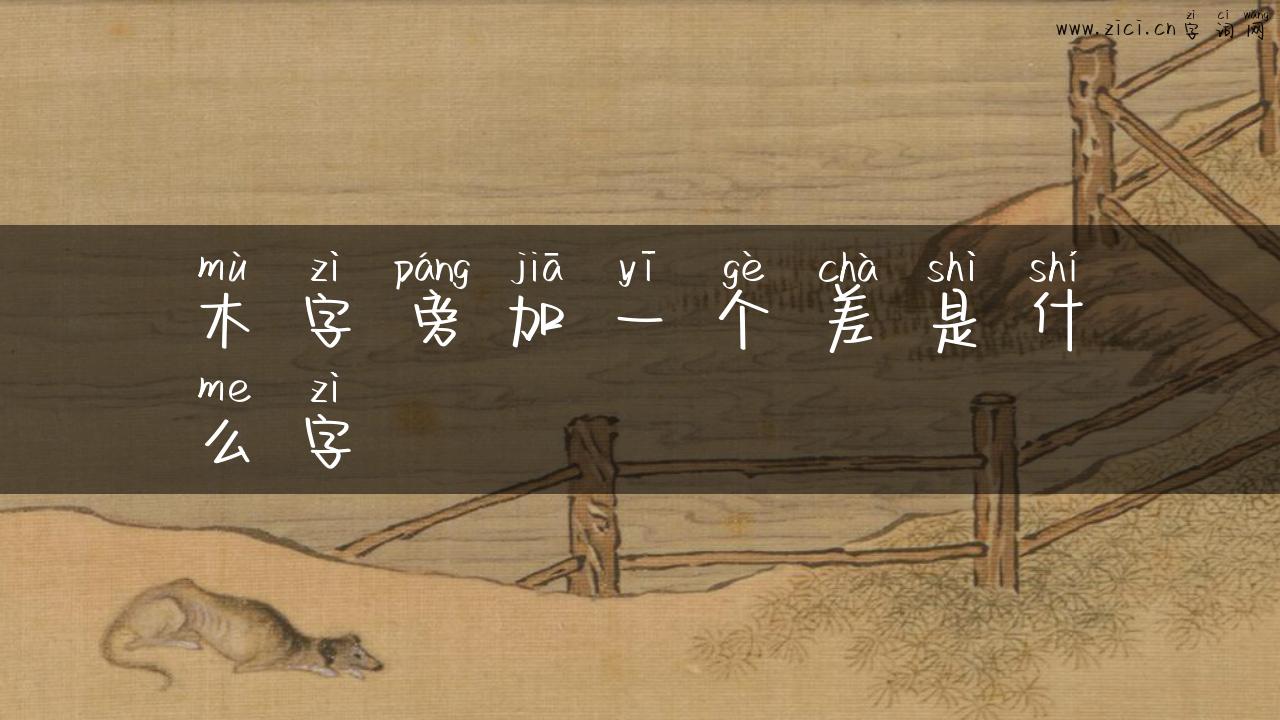 zì cí wǎng
www.zici.cn 字词网
mù zì páng jiā yī gè chà shì shí
木字旁加一个差是什
me zì
么字